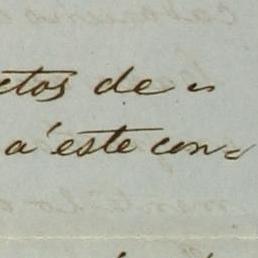 ctos de
á este con-